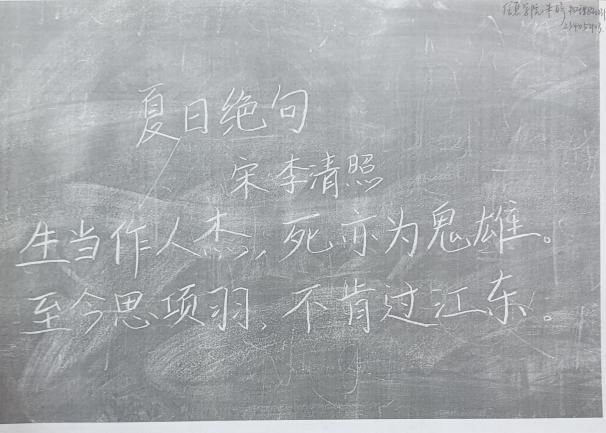 信息学院
夏日绝句
宋 李清照
生当作人杰，死亦为鬼雄。
至今思项羽，不肯过江东。